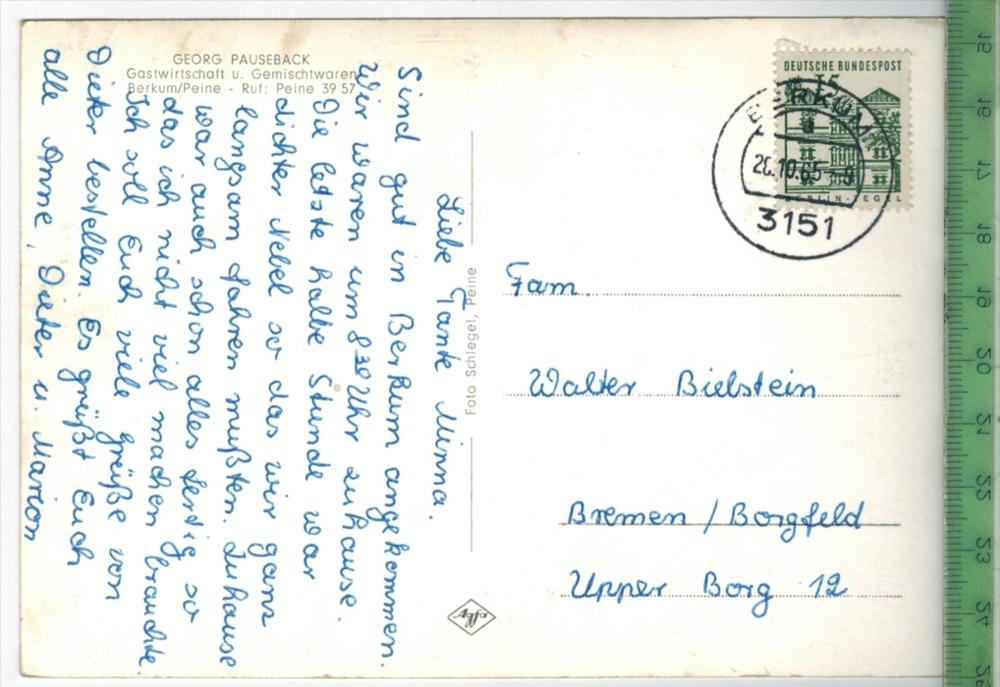 GEORG PAUSEBACK
Gastwirtschaft u. Gemischtwaren
Berkum/Peine - Ruf: Peine 39 57
Liebe Tante Minna.
Sind gut in Berkum angekommen.
Wir waren um 8³⁰ Uhr zuhause.
Die letzte halbe Stunde war
dichter Nebel so das wir ganz
langsam fahren mußten. Zuhause
war auch schon alles fertig so
das ich nicht viel machen brauchte.
Ich soll Euch viele grüße von
Dieter bestellen. Es grüßt Euch
alle Anne, Dieter u. Marion
Foto Schlegel, Peine
Agfa
DEUTSCHE BUNDESPOST
15
BERLIN-TEGEL
BERKUM
a
26.10.65 - 9
3151
Fam.
Walter Bielstein
Bremen / Borgfeld
Upper Borg 12
15
17
18
19
20
21
22
23
24